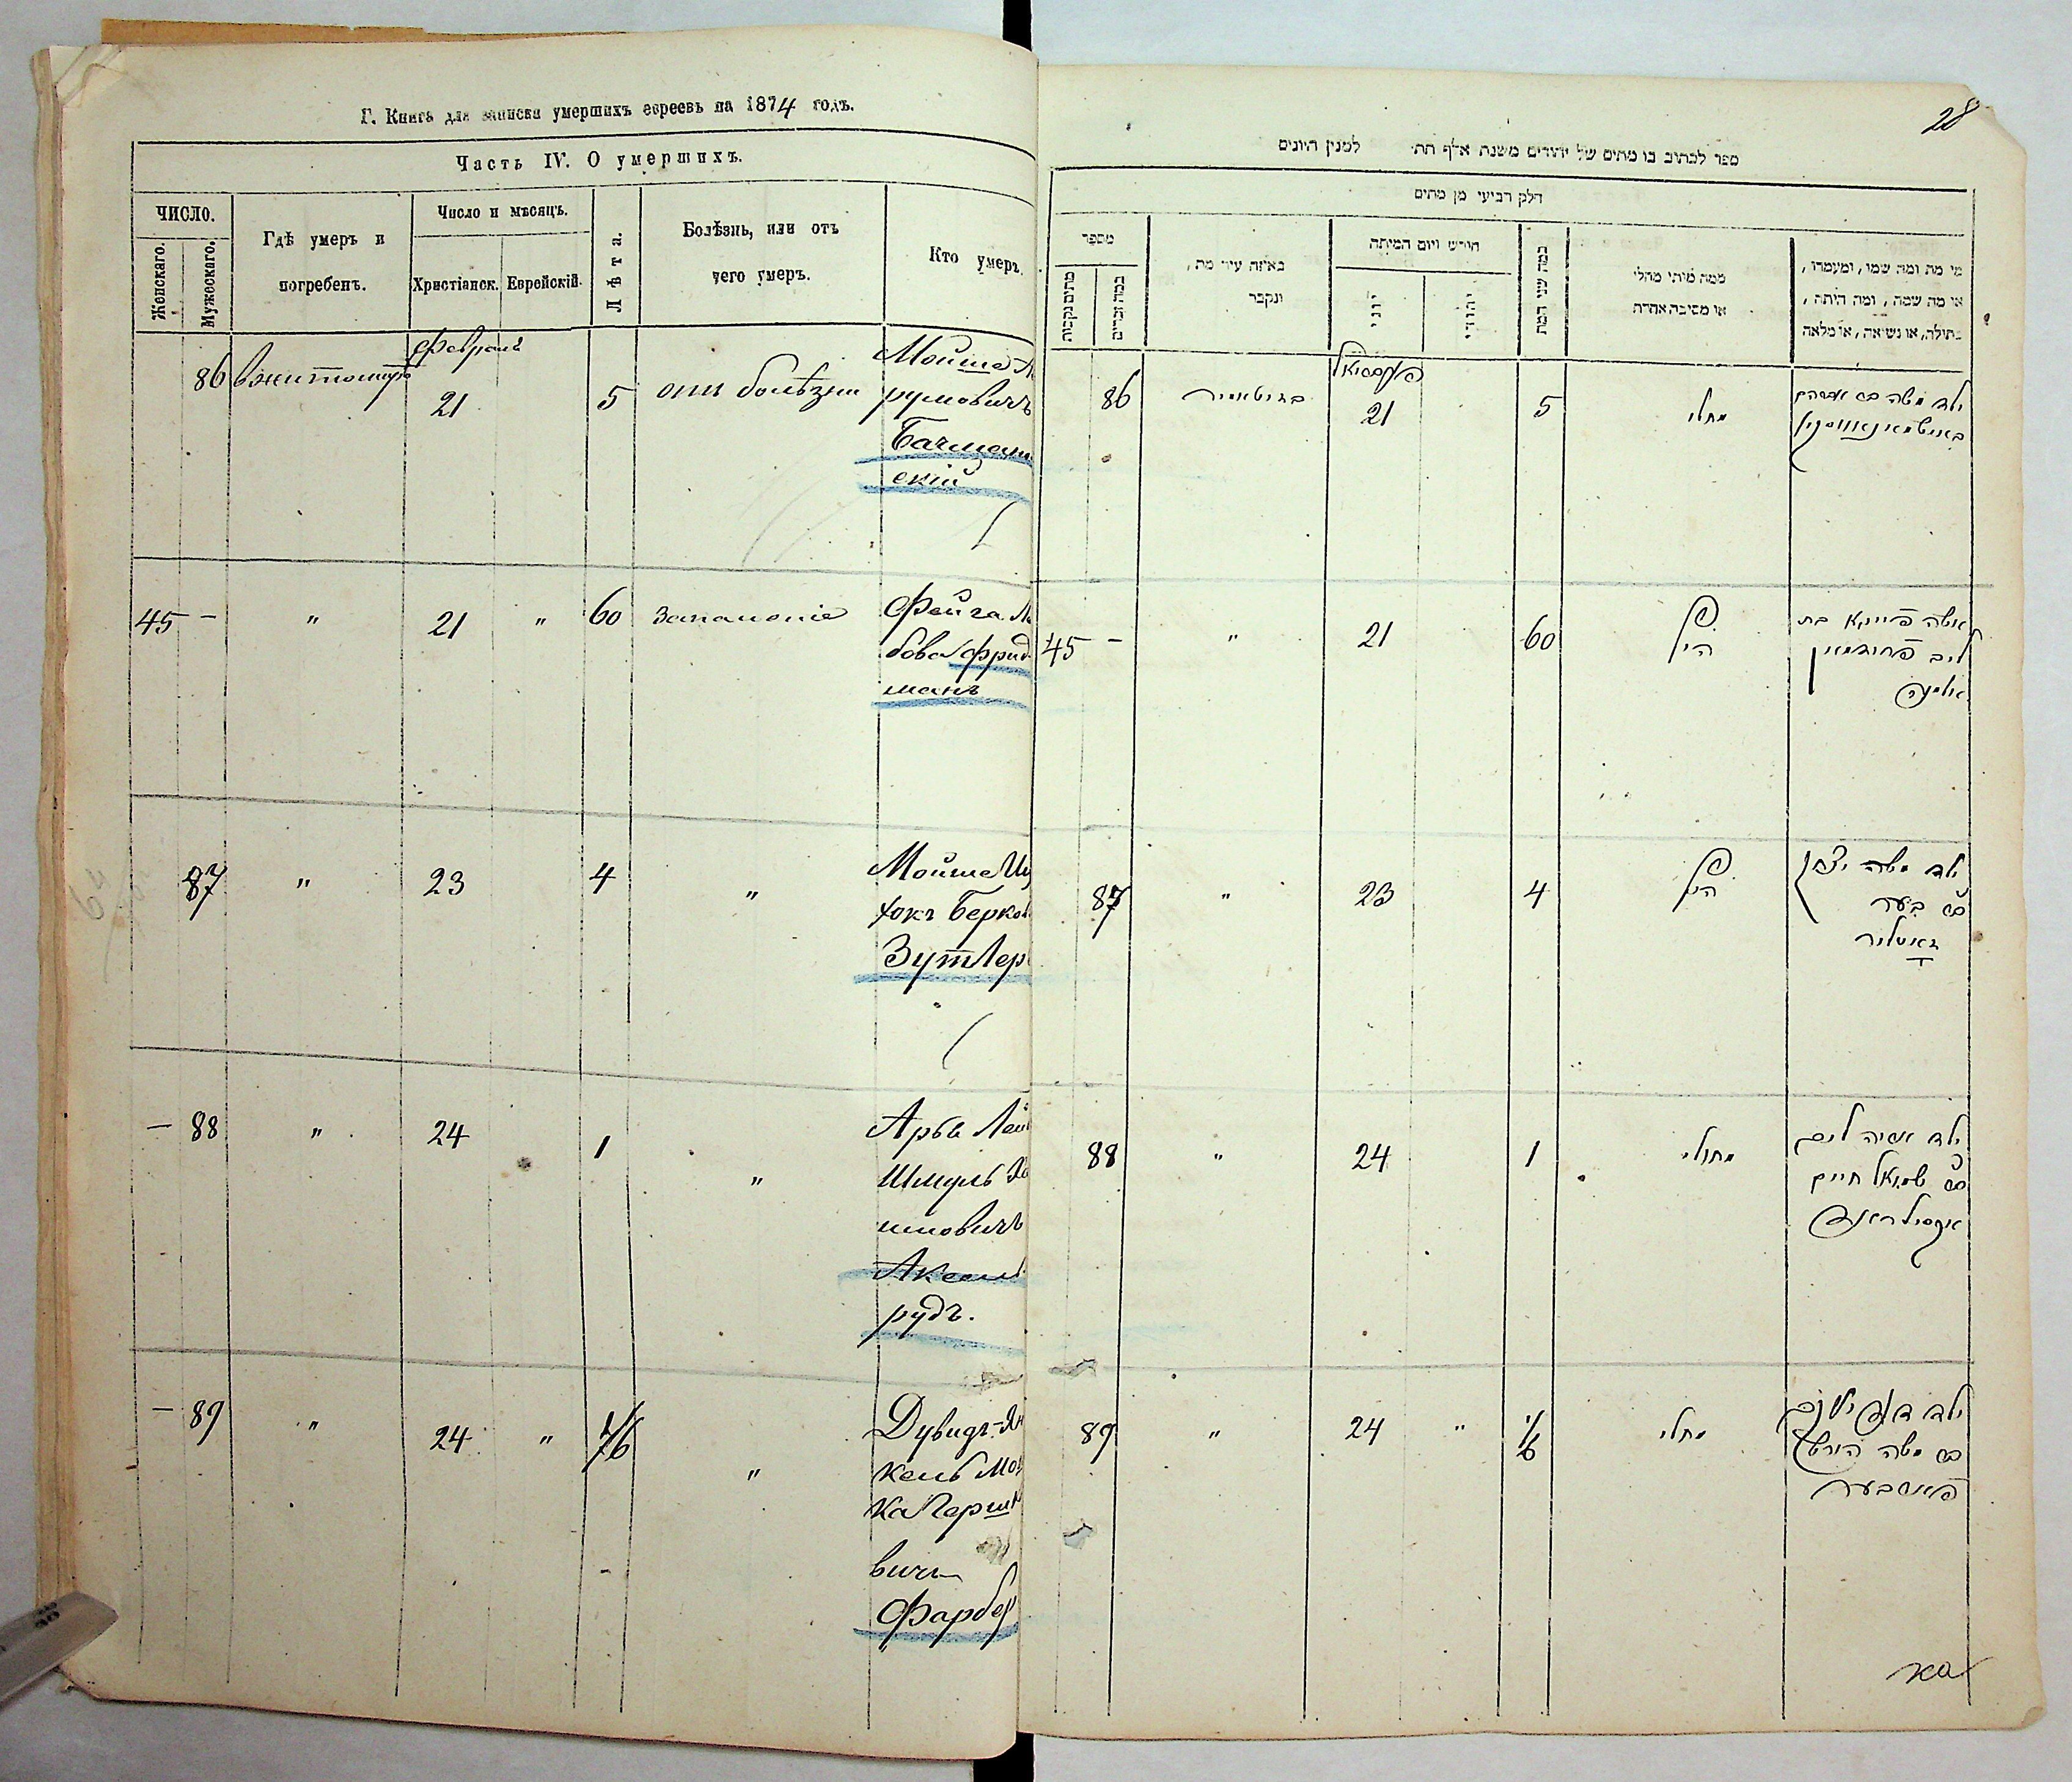 Г. Книга для записки умершихъ евреевъ на 1874 годъ.
Часть IV. О умершихъ.
ЧИСЛО.
Женскаго.
Мужескаго.
Гдѣ умеръ и
погребенъ.
Число и мѣсяцъ.
Христіанск.
Еврейскій.
Лѣта.
Болѣзнь, или отъ
чего умеръ.
Кто умеръ
86 вжитомирѣ
21
5
Мойше
Бачман
скій
45 — " 21 " 60
Фейга
бова Фрид
манъ
87 " 23 4 "
Мойше Иц
хокъ Берков
Зутлер
— 88 " 24 1 "
Арье Лей
Шмуль
мовичъ
Аксель
рудъ.
— 89 " 24 " 1/6 "
Дувидъ-Ян
кель Мош
ка Герш
вичъ
Фарбер
28
ספר לכתוב בו מתים של יהודים משנת אלף תת׳ למנין היונים
חלק רביעי מן מתים
מספר
מתים נקבות
במה זכרים
באיזה עיר מת,
ונקבר
חודש ויום המיתה
יוני
יהודי
כמה שני המת
ממה מיתי מחלי
או מסיבה אחרת
מי מת ומה שמו, ומעמדו,
או מה שמה, ומה היתה,
בתולה, או נשיאה, או מלאה
86
21
5
מחלי
ילד משה בן אברהם
45 — " 21 60
אשה פייגא בת
ליב פרידמאן
אלמנה
87 " 23 4
ילד משה יצחק
בן בער
זוטליר
88 " 24 1
מחולי
ילד אריה ליב
בן שמואל חיים
אקסילראד
89 " 24 " 1/6
מחלי
ילד דוד יעקב
בן משה הירש
פארבער